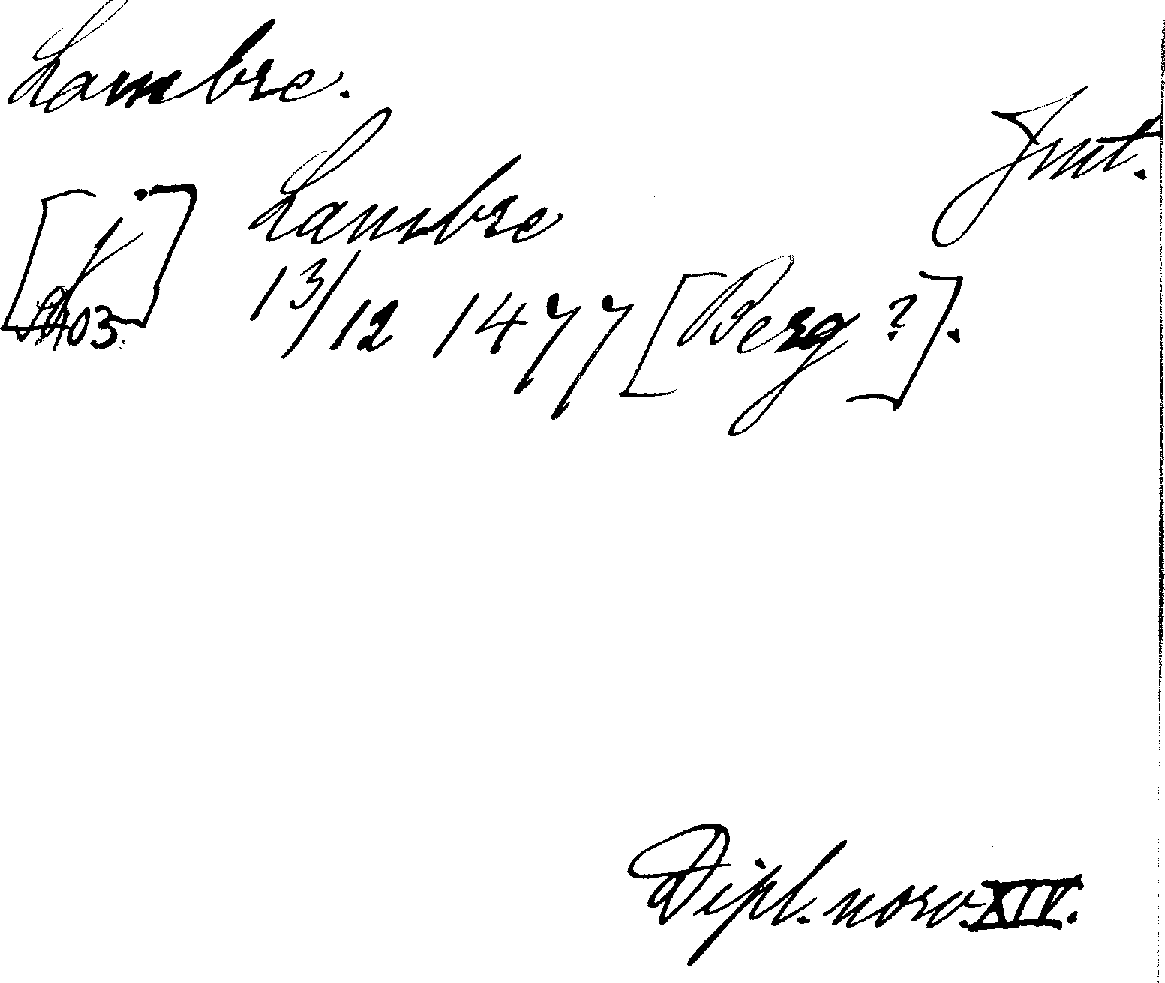 Lambre.
Jmt.
[j.] Lambre
13/12 1477 [Berg?].
Dipl. norv. XIV.